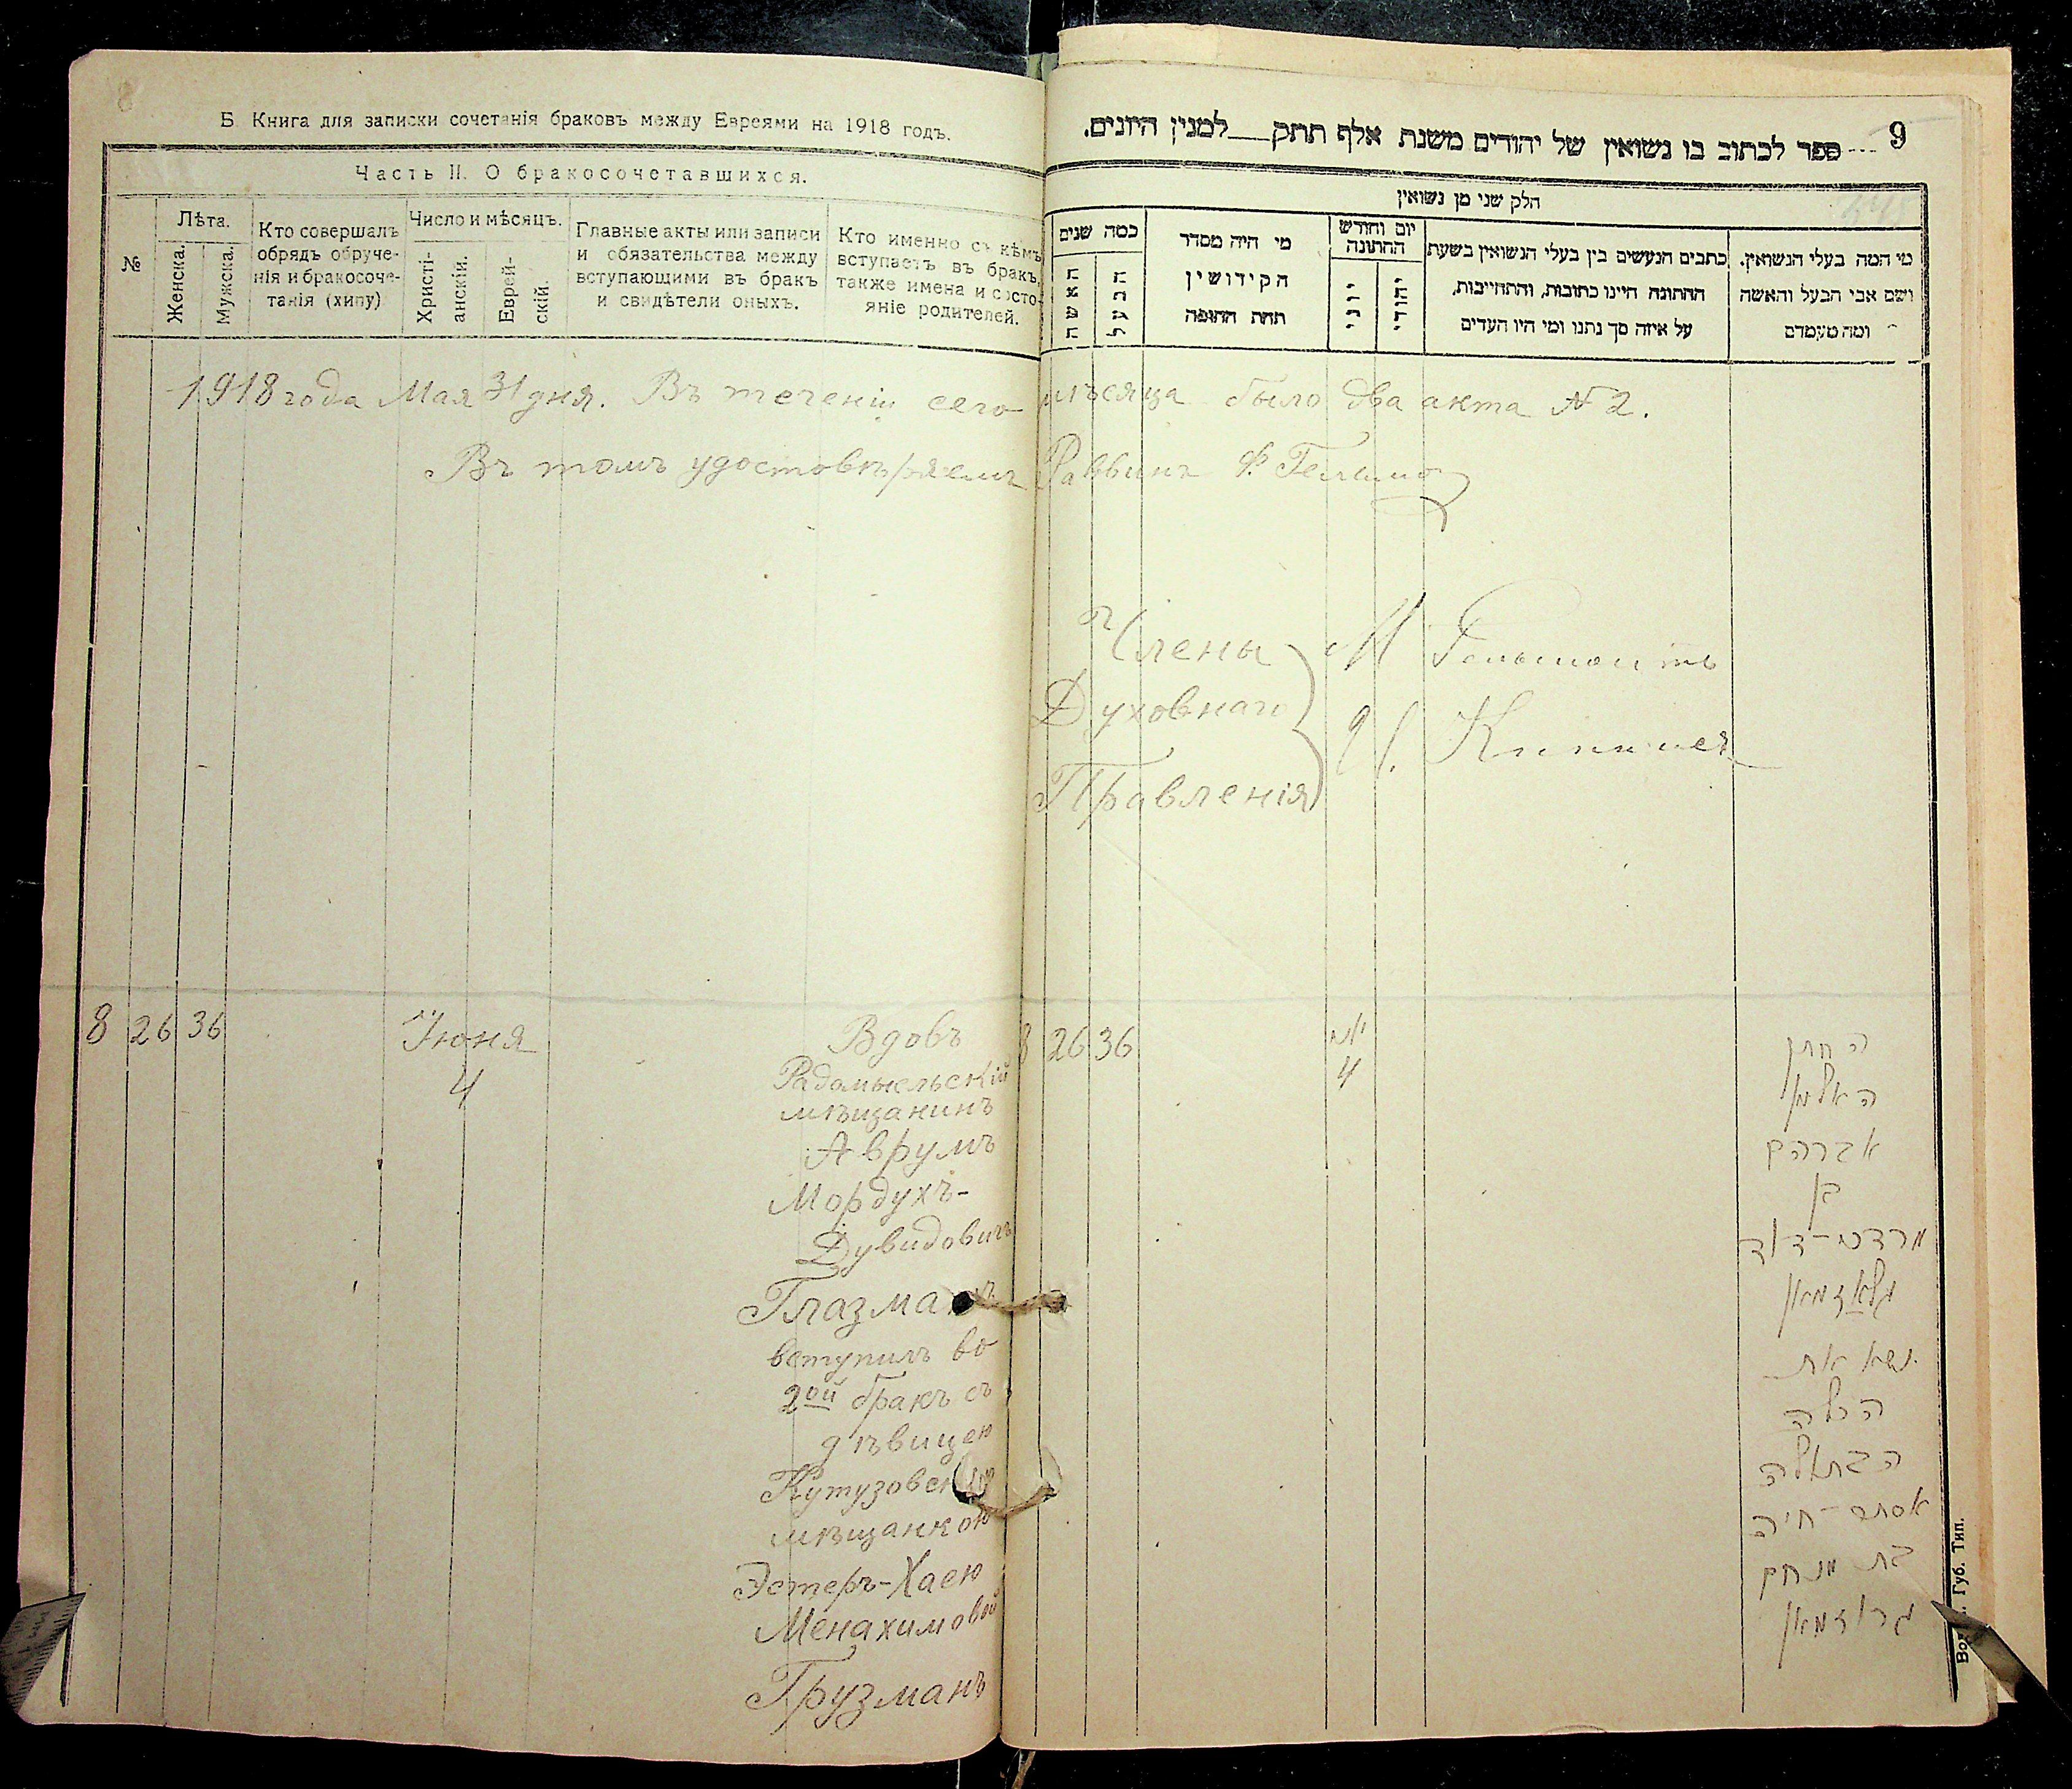 8
Б. Книга для записки сочетанія браковъ между Евреями на 1918 годъ.
Часть II. О бракосочетавшихся.
№
Лѣта.
Женска.
Мужска.
Кто совершалъ
обрядъ обруче-
нія и бракосоче-
танія (хипу)
Число и мѣсяцъ.
Христі-
анскій.
Еврей-
скій.
Главные акты или записи
и обязательства между
вступающими въ бракъ
и свидѣтели оныхъ.
Кто именно съ кѣмъ
вступаетъ въ бракъ,
также имена и состо-
яніе родителей.
9
ספר לכתוב בו נשואין של יהודים משנת אלף תתק למנין היונים.
חלק שני מן נשואין
כמה שנים
האשה
הבעל
מי היה מסדר
הקידושין
תחת החופה
יום וחודש
החתונה
יוני
יהודי
כתבים הנעשים בין בעלי הנשואין בשעת
החתונה היינו כתובות, והתחייבות,
על איזה סך נתנו ומי היו העדים
מי המה בעלי הנשואין.
ושם אבי הבעל והאשה
ומה מעמדם
1918 года Мая 31 дня. Въ теченіи сего мѣсяца было два акта № 2.
Въ томъ удостовѣряемъ Раввинъ
Члены
Духовнаго
Правленія
М
8 26 36
Іюня
4
Вдовъ
Радомысльскій
мѣщанинъ
Аврумъ
Мордухъ-
Дувидовичъ
Глазманъ
вступилъ во
2ой бракъ съ
дѣвицею
Кутузовскою
мѣщанкою
Эстеръ-Хаею
Менахимовой
Грузманъ
8 26 36
4
החתן
האלמן
אברהם
בן
מרדכי-דוד
גלאזמאן
נשא את
הכלה
הבתולה
אסתר-חיה
בת מנחם
גרוזמאן
Губ. Тип.